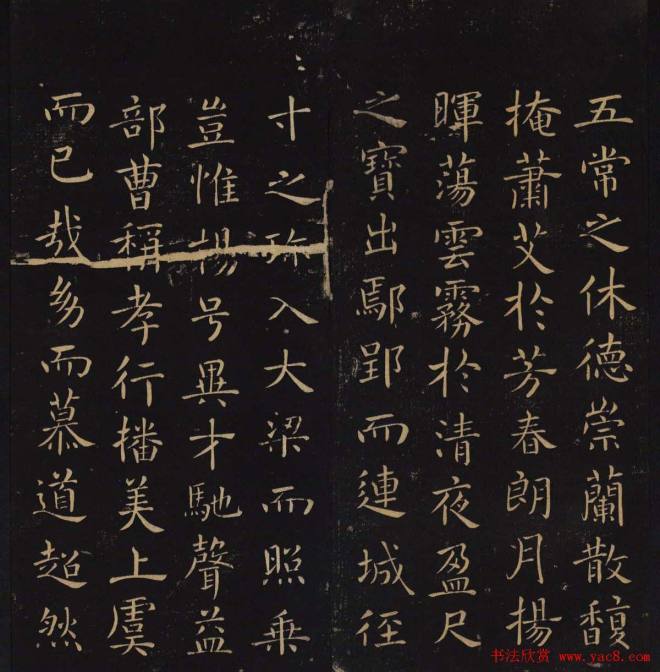 五常之休德崇蘭散馥
掩蕭艾於芳春朗月揚
暉蕩雲霧於清夜盈尺
之寶出鄢郢而連城徑
寸之珎入大梁而照乗
豈惟楊号異才馳聲益
部曹稱孝行播美上虞
而已哉㓜而慕道超然
书法欣赏 www.yac8.com